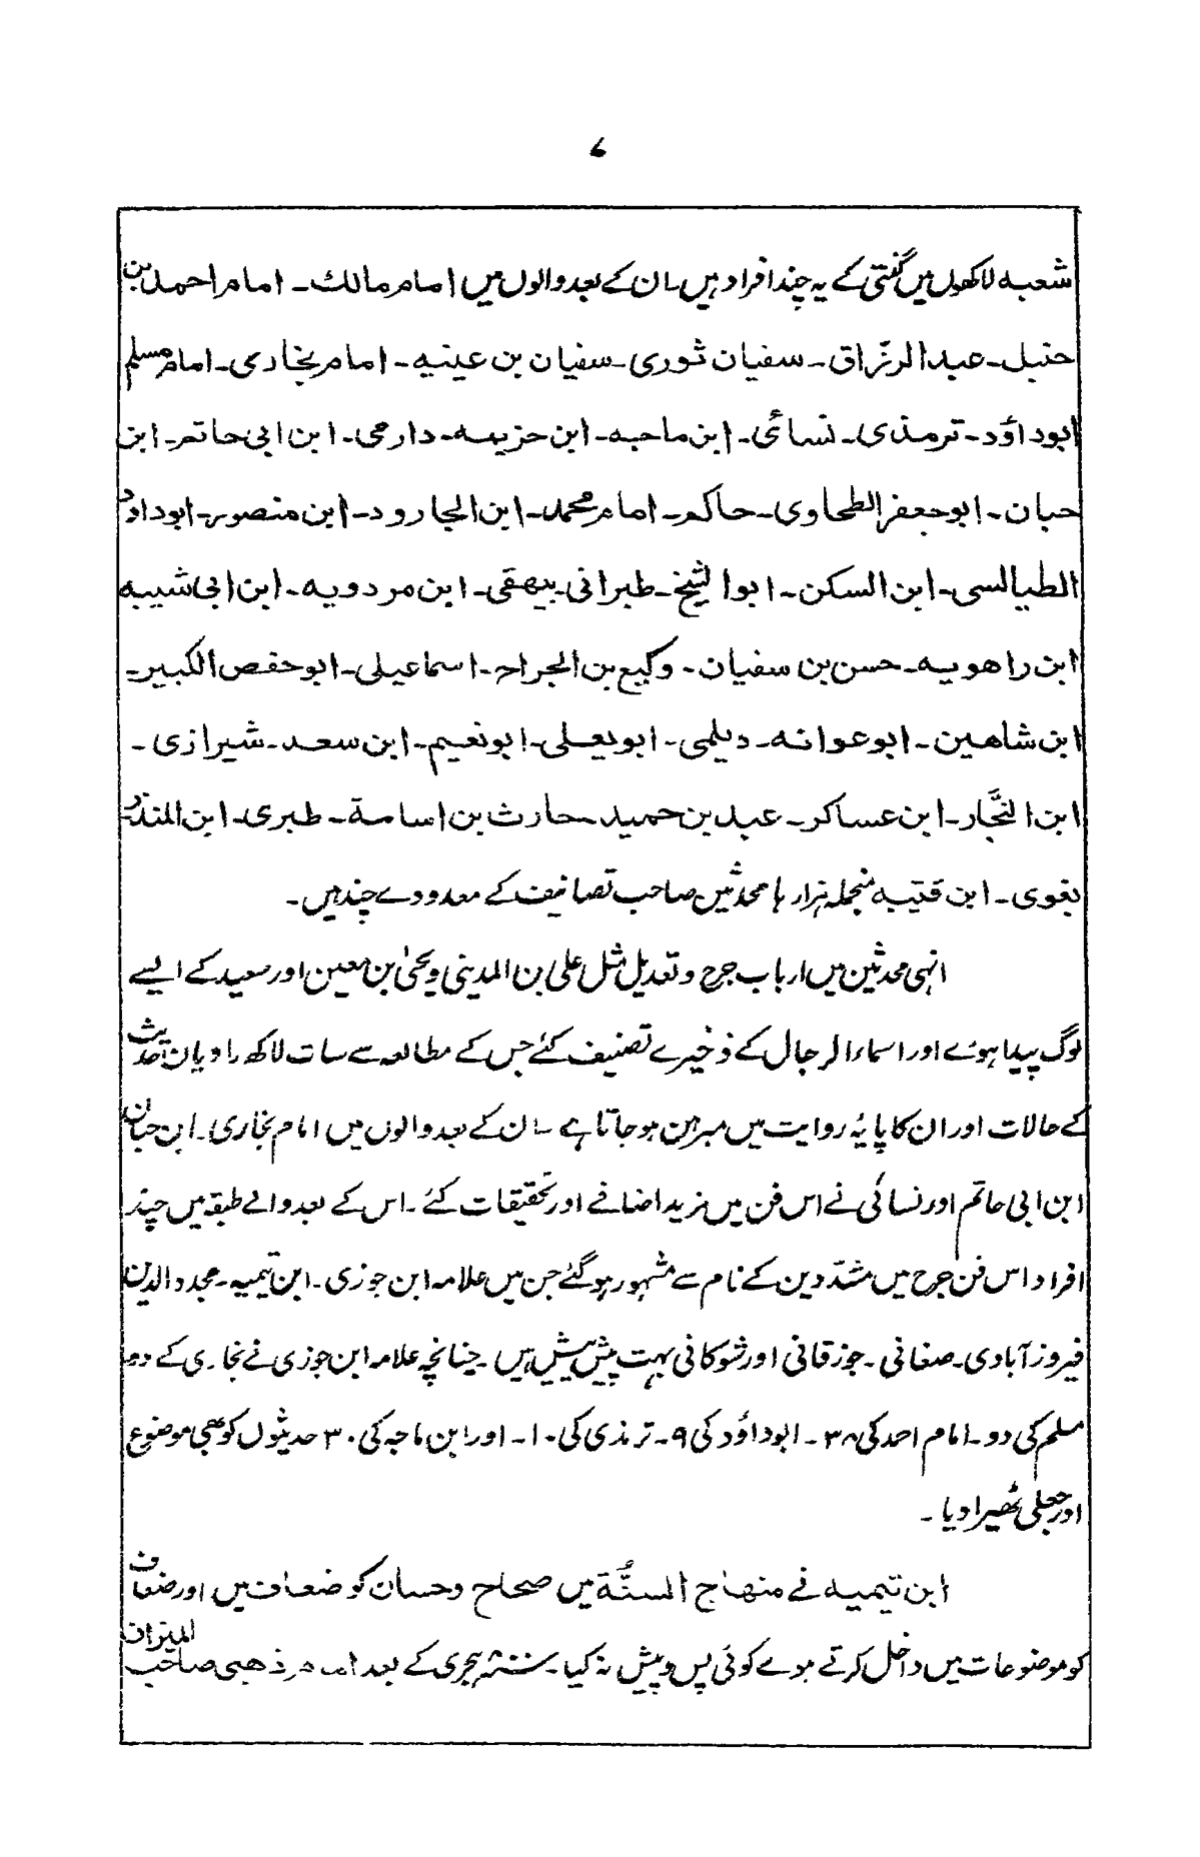 ۷
شعبہ لاکھوں میں گنتی کے یہ چند افراد ہیں۔ ان کے بعد والوں میں امام مالک۔ امام احمد بن
حنبل۔ عبد الرزّاق۔ سفیان ثوری۔ سفیان بن عینیہ۔ امام بخاری۔ امام مسلم
ابوداؤد۔ ترمذی۔ نسائی۔ ابن ماجہ۔ ابن خزیمہ۔ دارمی۔ ابن ابی حاتم۔ ابن
حبان۔ ابو جعفر الطحاوی۔ حاکم۔ امام محمد۔ ابن الجارود۔ ابن منصور۔ ابوداؤد
الطیالسی۔ ابن السکن۔ ابو الشیخ۔ طبرانی۔ بیھقی۔ ابن مردویہ۔ ابن ابی شیبہ
ابن راھویہ۔ حسن بن سفیان۔ وکیع بن الجراح۔ اسماعیلی۔ ابو حفص الکبیر۔
ابن شاھین۔ ابو عوانہ۔ دیلمی۔ ابو یعلی۔ ابو نعیم۔ ابن سعد۔ شیرازی۔
ابن النجَّار۔ ابن عساکر۔ عبد بن حمید۔ حارث بن اسامة۔ طبری۔ ابن المنذر
بغوی۔ ابن قتیبہ منجملہ ہزارہا محدثین صاحب تصانیف کے معدودے چند ہیں۔
انہی محدثین میں ارباب جرح و تعدیل مثل علی بن المدینی و یحیٰی بن معین اور سعید کے ایسے
لوگ پیدا ہوئے اور اسماء الرجال کے ذخیرے تصنیف کئے جس کے مطالعہ سے سات لاکھ راویان احادیث
کے حالات اور ان کا پایۂ روایت میں مبرہن ہو جاتا ہے۔ ان کے بعد والوں میں امام بخاری۔ ابن حبان
ابن ابی حاتم اور نسائی نے اس فن میں مزید اضافے اور تحقیقات کئے۔ اس کے بعد والے طبقہ میں چند
افراد اس فن جرح میں متشدّدین کے نام سے مشہور ہو گئے جن میں علامہ ابن جوزی۔ ابن تیمیہ۔ مجدد الدین
فیروز آبادی۔ صغانی۔ جوزقانی اور شوکانی بہت پیش پیش ہیں۔ چنانچہ علامہ ابن جوزی نے بخاری کے دو
مسلم کی دو۔ امام احمد کی ۳۸۔ ابوداؤد کی ۹۔ ترمذی کی ۱۰۔ اور ابن ماجہ کی ۳۰ حدیثوں کو بھی موضوع
اور جعلی ٹھیرا دیا۔
ابن تیمیہ نے منہاج السنُّة میں صحاح و حسان کو ضعاف میں اور ضعاف
کو موضوعات میں داخل کرتے ہوے کوئی پس و پیش نہ کیا۔ ہجری کے بعد امام ذھبی صاحب المیزان